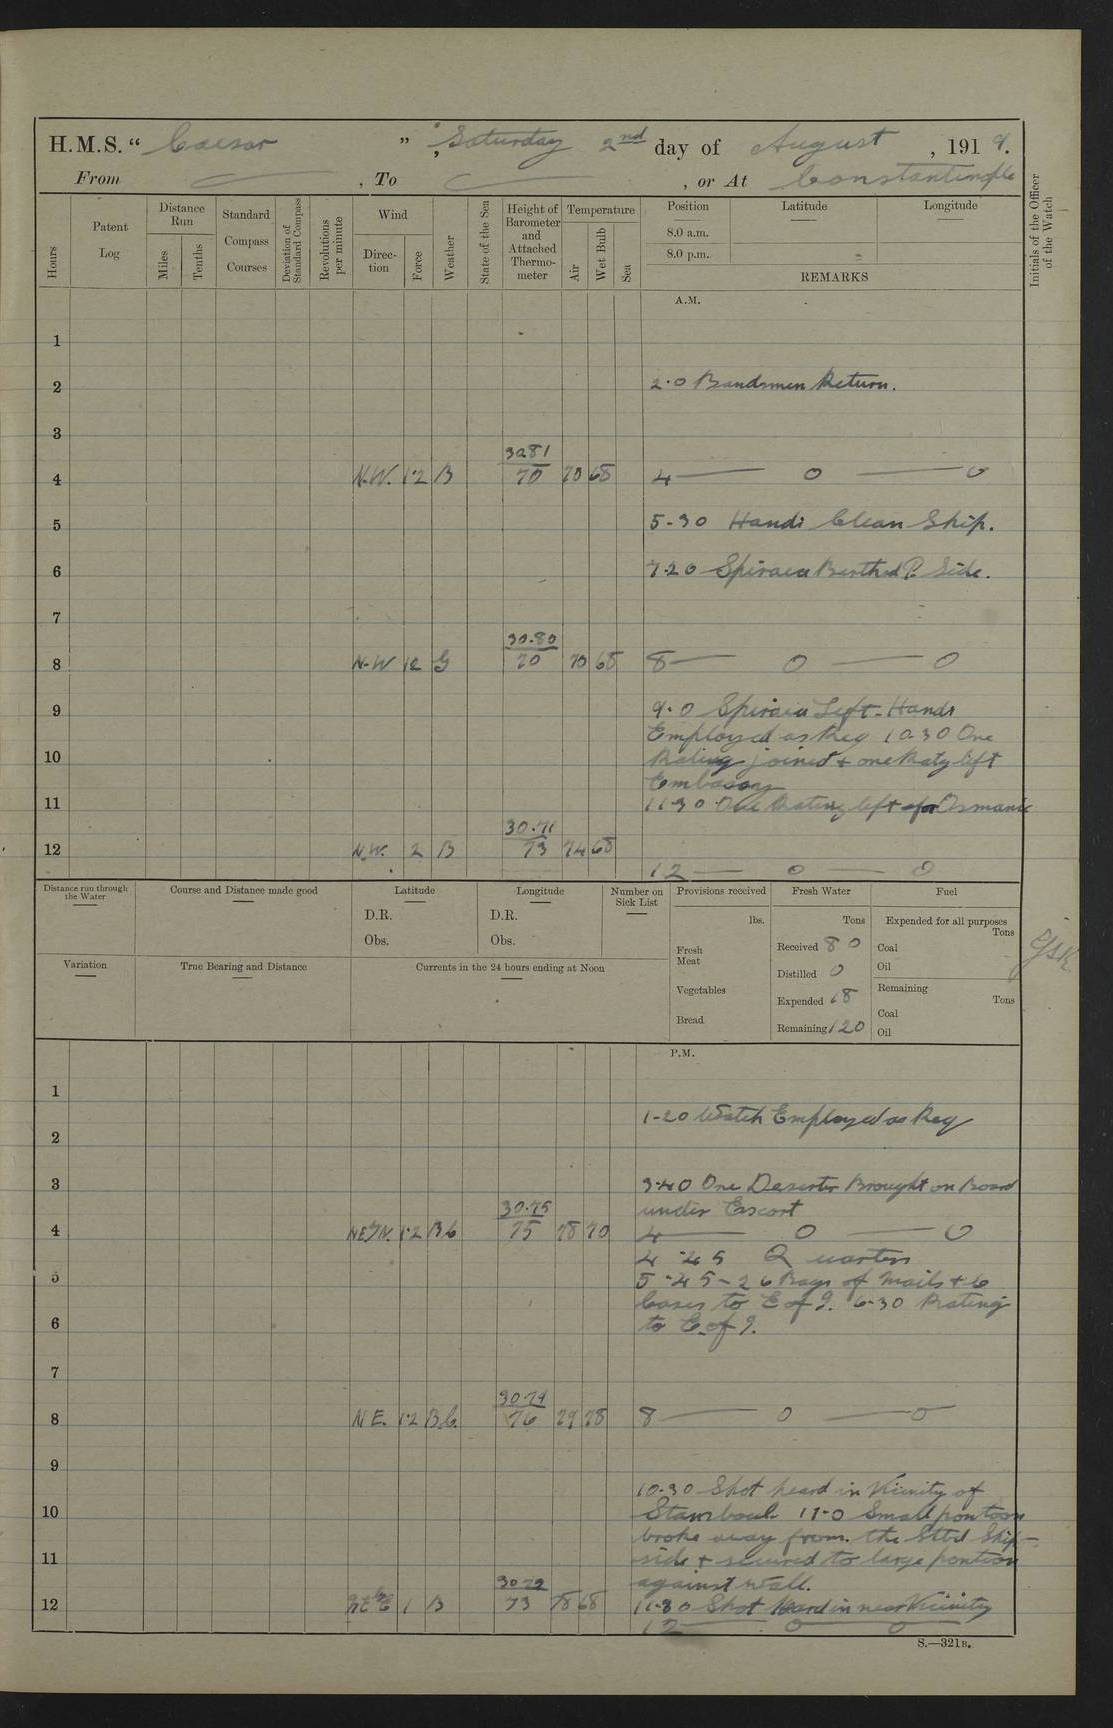 H.M.S. “ Caesar ” , Saturday 2nd day of August , 1919.
From — , To — , or At Constantinople
Hours
Patent Log
Distance Run
Miles
Tenths
Standard Compass Courses
Deviation of Standard Compass
Revolutions per minute
Wind
Direction
Force
Weather
State of the Sea
Height of Barometer and Attached Thermometer
Temperature
Air
Wet Bulb
Sea
Position Latitude Longitude
8.0 a.m.
8.0 p.m.
REMARKS
Initials of the Officer of the Watch
A.M.
1
2 2.0 Bandsmen Return.
3
30.81
4 N.W. 1.2 B 70 70 68 4 — 0 — 0
5 5-30 Hands Clean Ship.
6 7.20 Spiraea Berthed P. Side.
7
30.80
8 N-W 12 G 70 70 68 8 — 0 — 0
9 9.0 Spiraea Left - Hands
Employed as Req 10.30 One
10 Rating joined + one Ratg left
Embassy
11 11.30 One Rating left for Osmanie
30.71
12 N.W. 2 B 73 74 68
12 — 0 — 0
Distance run through the Water
Course and Distance made good
Latitude
D.R.
Obs.
Longitude
D.R.
Obs.
Number on Sick List
Provisions received
lbs.
Fresh Meat
Vegetables
Bread
Fresh Water
Tons
Received 80
Distilled 0
Expended 18
Remaining 120
Fuel
Expended for all purposes
Tons
Coal
Oil
Remaining
Tons
Coal
Oil
Variation
True Bearing and Distance
Currents in the 24 hours ending at Noon
P.M.
1
1-20 Watch Employed as Req
2
3 3.40 One Deserter Brought on Board
30.75 under Escort
4 NE/N. 1.2 B.C 75 78 70 4 — 0 — 0
4.45 Quarters
5 5.45 - 26 Bags of Mails + 6
Cases to E of I. 6-30 Ratings
6 to E. of I.
7
30.79
8 N E. 1.2 B.C. 76 79 78 8 — 0 — 0
9
10.30 Shot heard in Vicinity of
10 Stamboul 11-0 Small pontoon
broke away from the Stbd Ship-
11 side + secured to large pontoon
30.79 against wall.
12 1 B 73 78 68 11-30 Shot heard in near Vicinity
12 — 0 — 0
S.—321B.